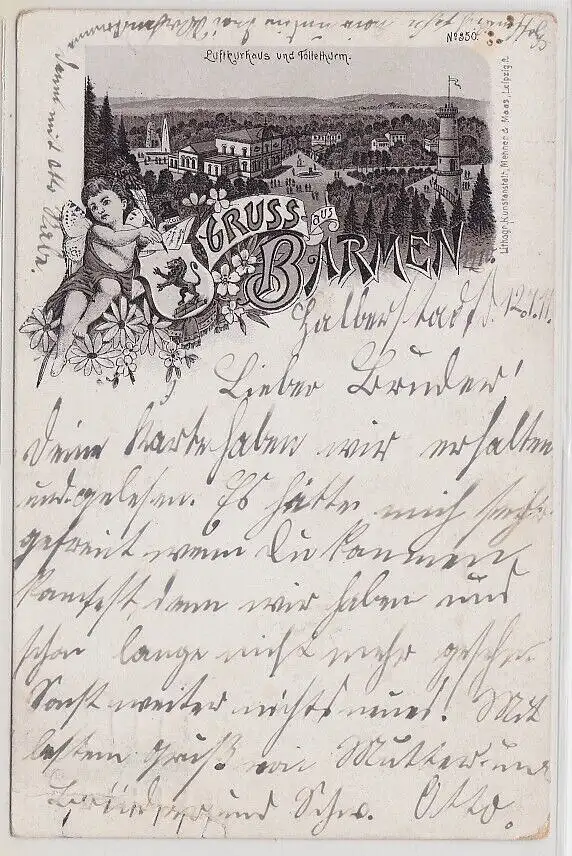 No 350.
Luftkurhaus und Tölleturm.
GRUSS AUS
BARMEN
Lithogr. Kunstanstalt, Mehner & Maas, Leipzig R.
Halberstadt d. 12.1.11.
Lieber Bruder!
Deine Karte haben wir erhalten
und gelesen. Es hätte mich sehr
gefreut wenn Du kommen
kamst, denn wir haben uns
schon lange nicht mehr gesehn.
Sonst weiter nichts neues! Mit
bestem Gruß von Mutter und
Brüder und Schw. Otto.